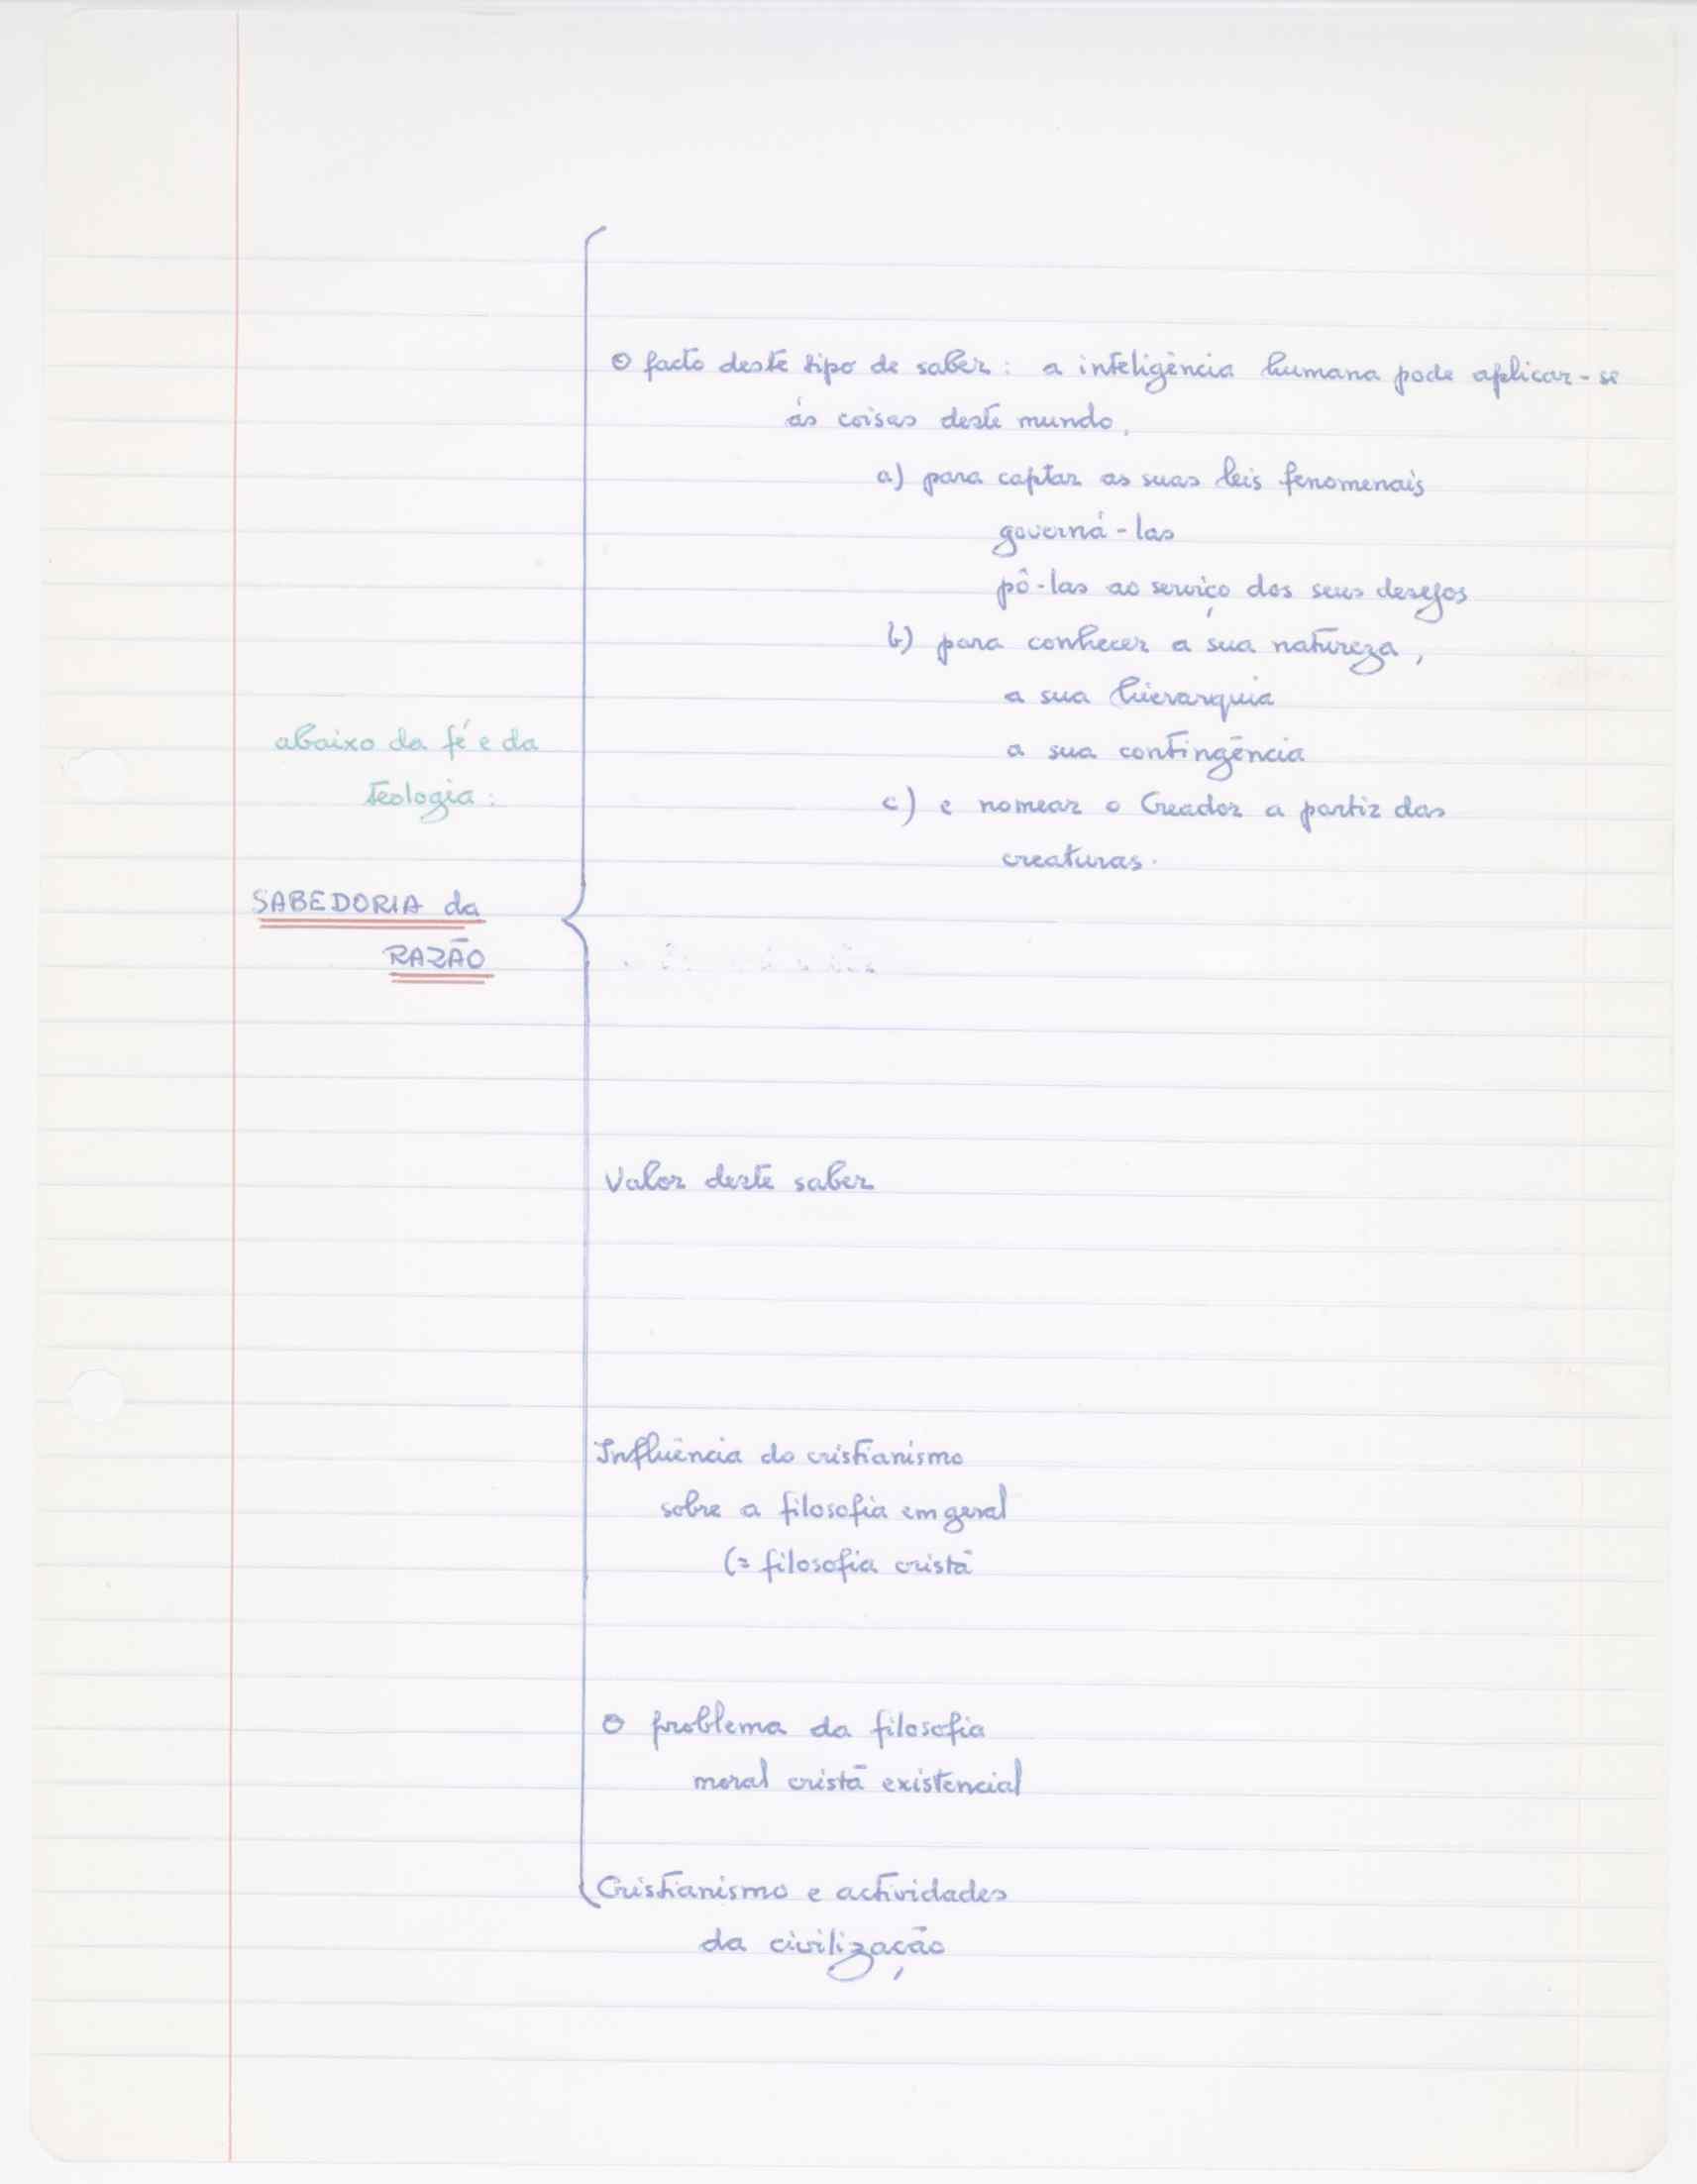 O facto deste tipo de saber: a inteligência humana pode aplicar-se
às coisas deste mundo,
a) para captar as suas leis fenomenais
governá-las
pô-las ao serviço dos seus desejos
b) para conhecer a sua natureza,
a sua hierarquia
a sua contingência
c) e nomear o Creador a partir das
creaturas.
abaixo da fé e da
teologia:
SABEDORIA da
RAZÃO
Valor deste saber
Influência do cristianismo
sobre a filosofia em geral
(= filosofia cristã
O problema da filosofia
moral cristã existencial
Cristianismo e actividades
da civilização